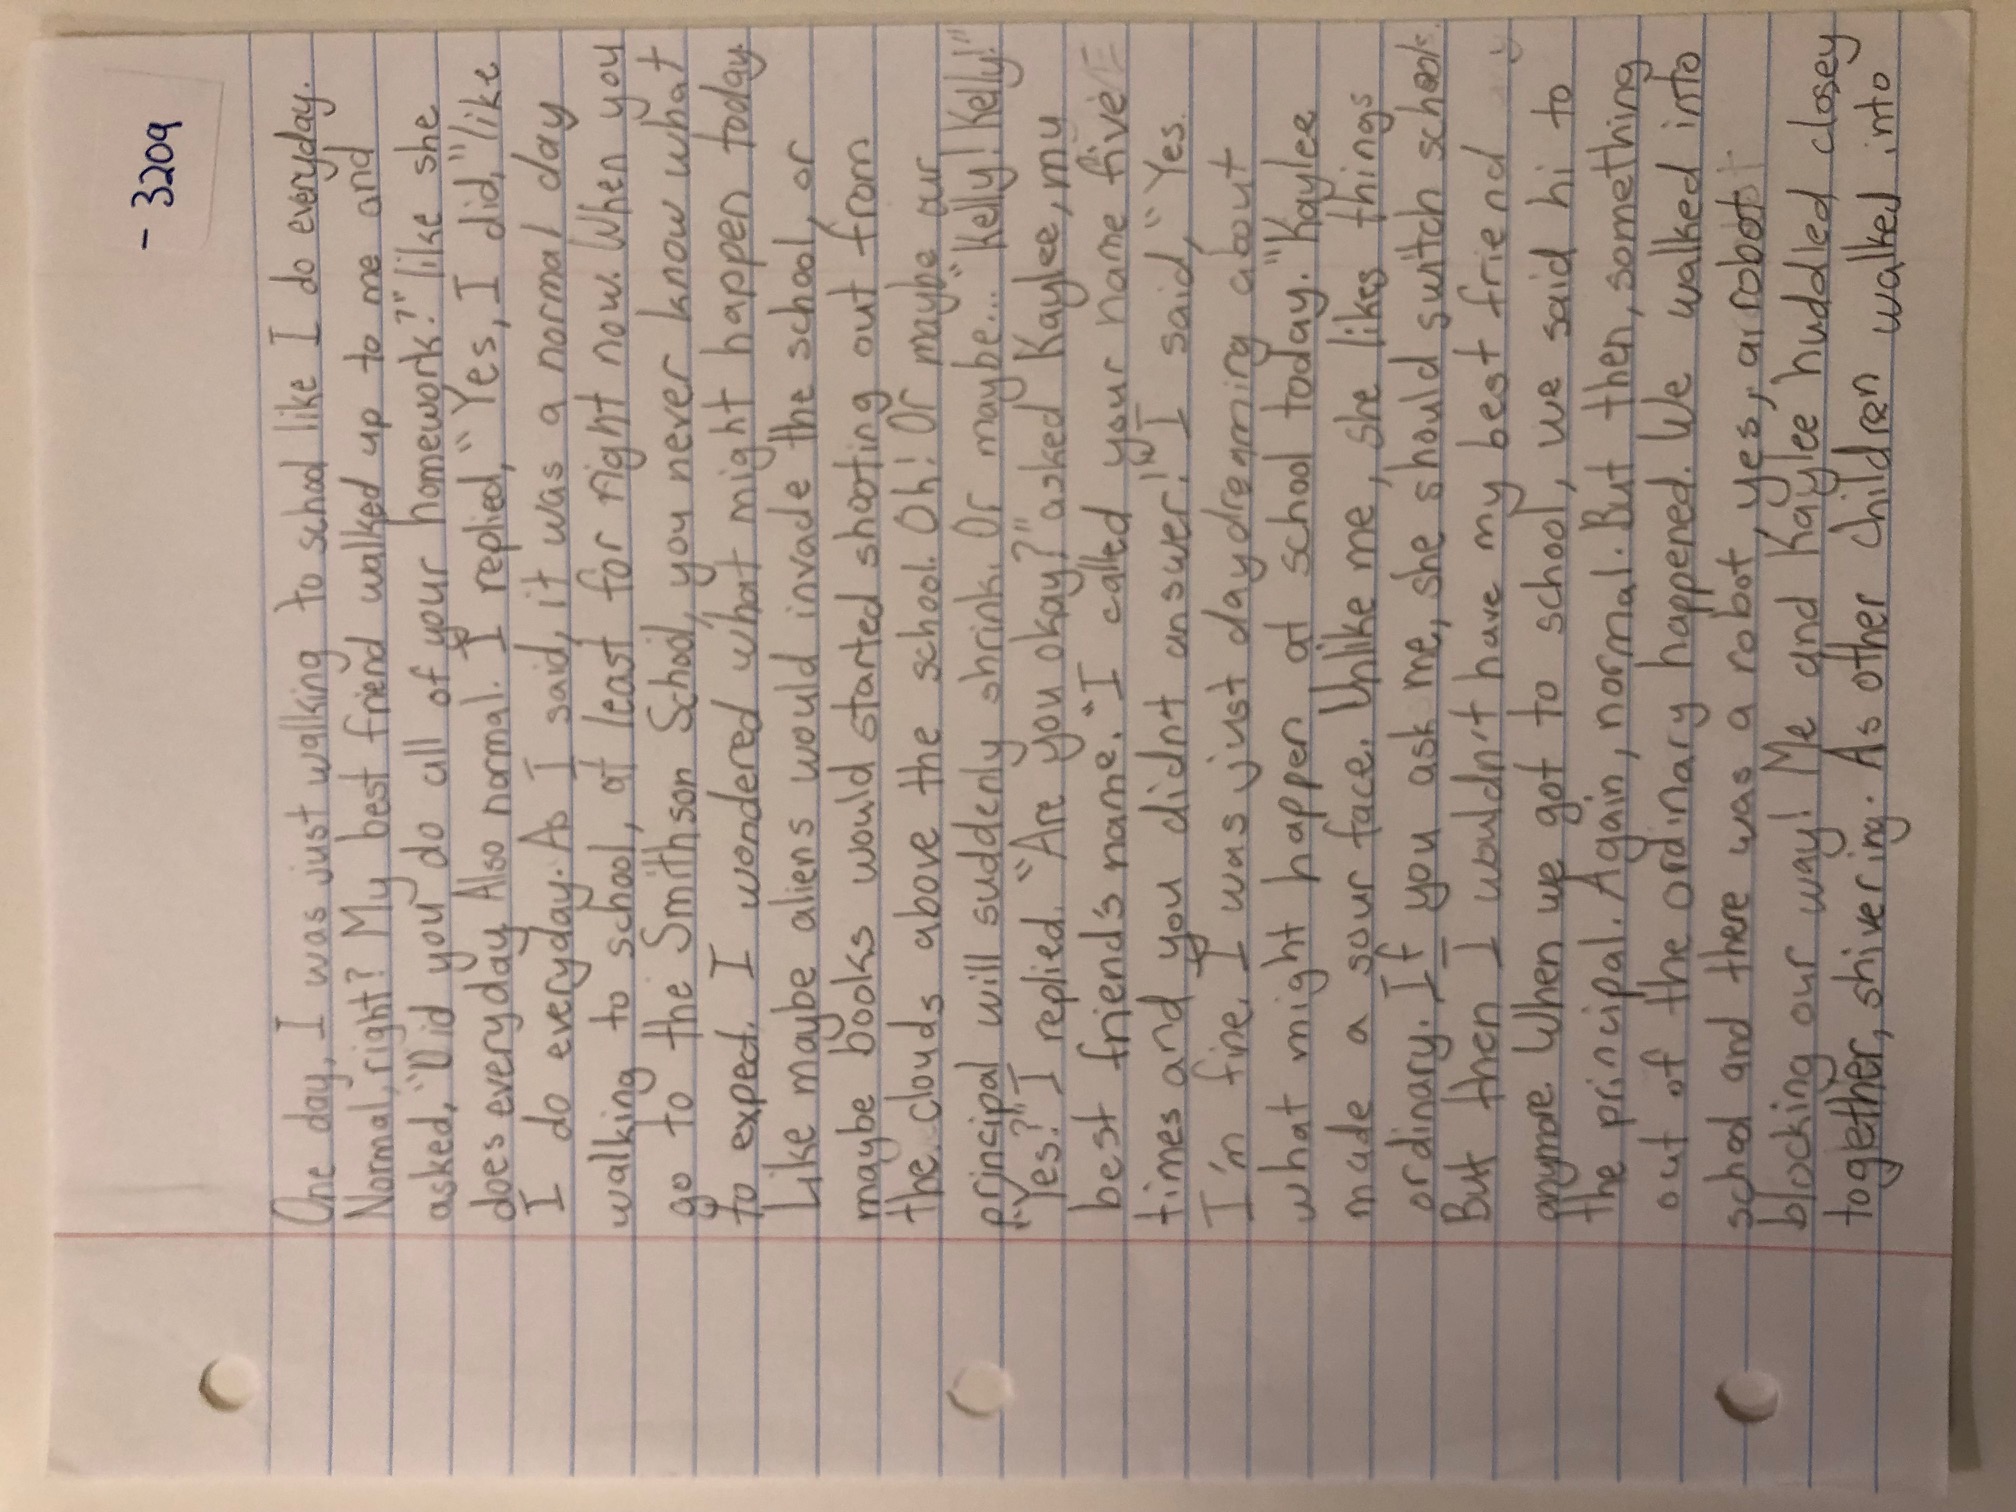 - 3209
One day, I was just walking to school like I do everyday.
Normal, right? My best friend walked up to me and
asked, "Did you do all of your homework?" like she
does everyday. Also normal. I replied, "Yes, I did," like
I do everyday. As I said, it was a normal day
walking to school, at least for right now. When you
go to the Smithson School, you never know what
to expect. I wondered what might happen today.
Like maybe aliens would invade the school, or
maybe books would started shooting out from
the clouds above the school. Oh! Or maybe our
principal will suddenly shrink. Or maybe... "Kelly! Kelly!"
"Yes?" I replied. "Are you okay?" asked Kaylee, my
best friend's name. "I called your name five
times and you didn't answer!" I said, "Yes.
I'm fine. I was just daydreaming about
what might happen at school today." Kaylee
made a sour face. Unlike me, she likes things
ordinary. If you ask me, she should switch schools.
But then I wouldn't have my best friend
anymore. When we got to school, we said hi to
the principal. Again, normal. But then, something
out of the ordinary happened. We walked into
school and there was a robot, yes, a robot
blocking our way! Me and Kaylee huddled closey
together, shivering. As other children walked into